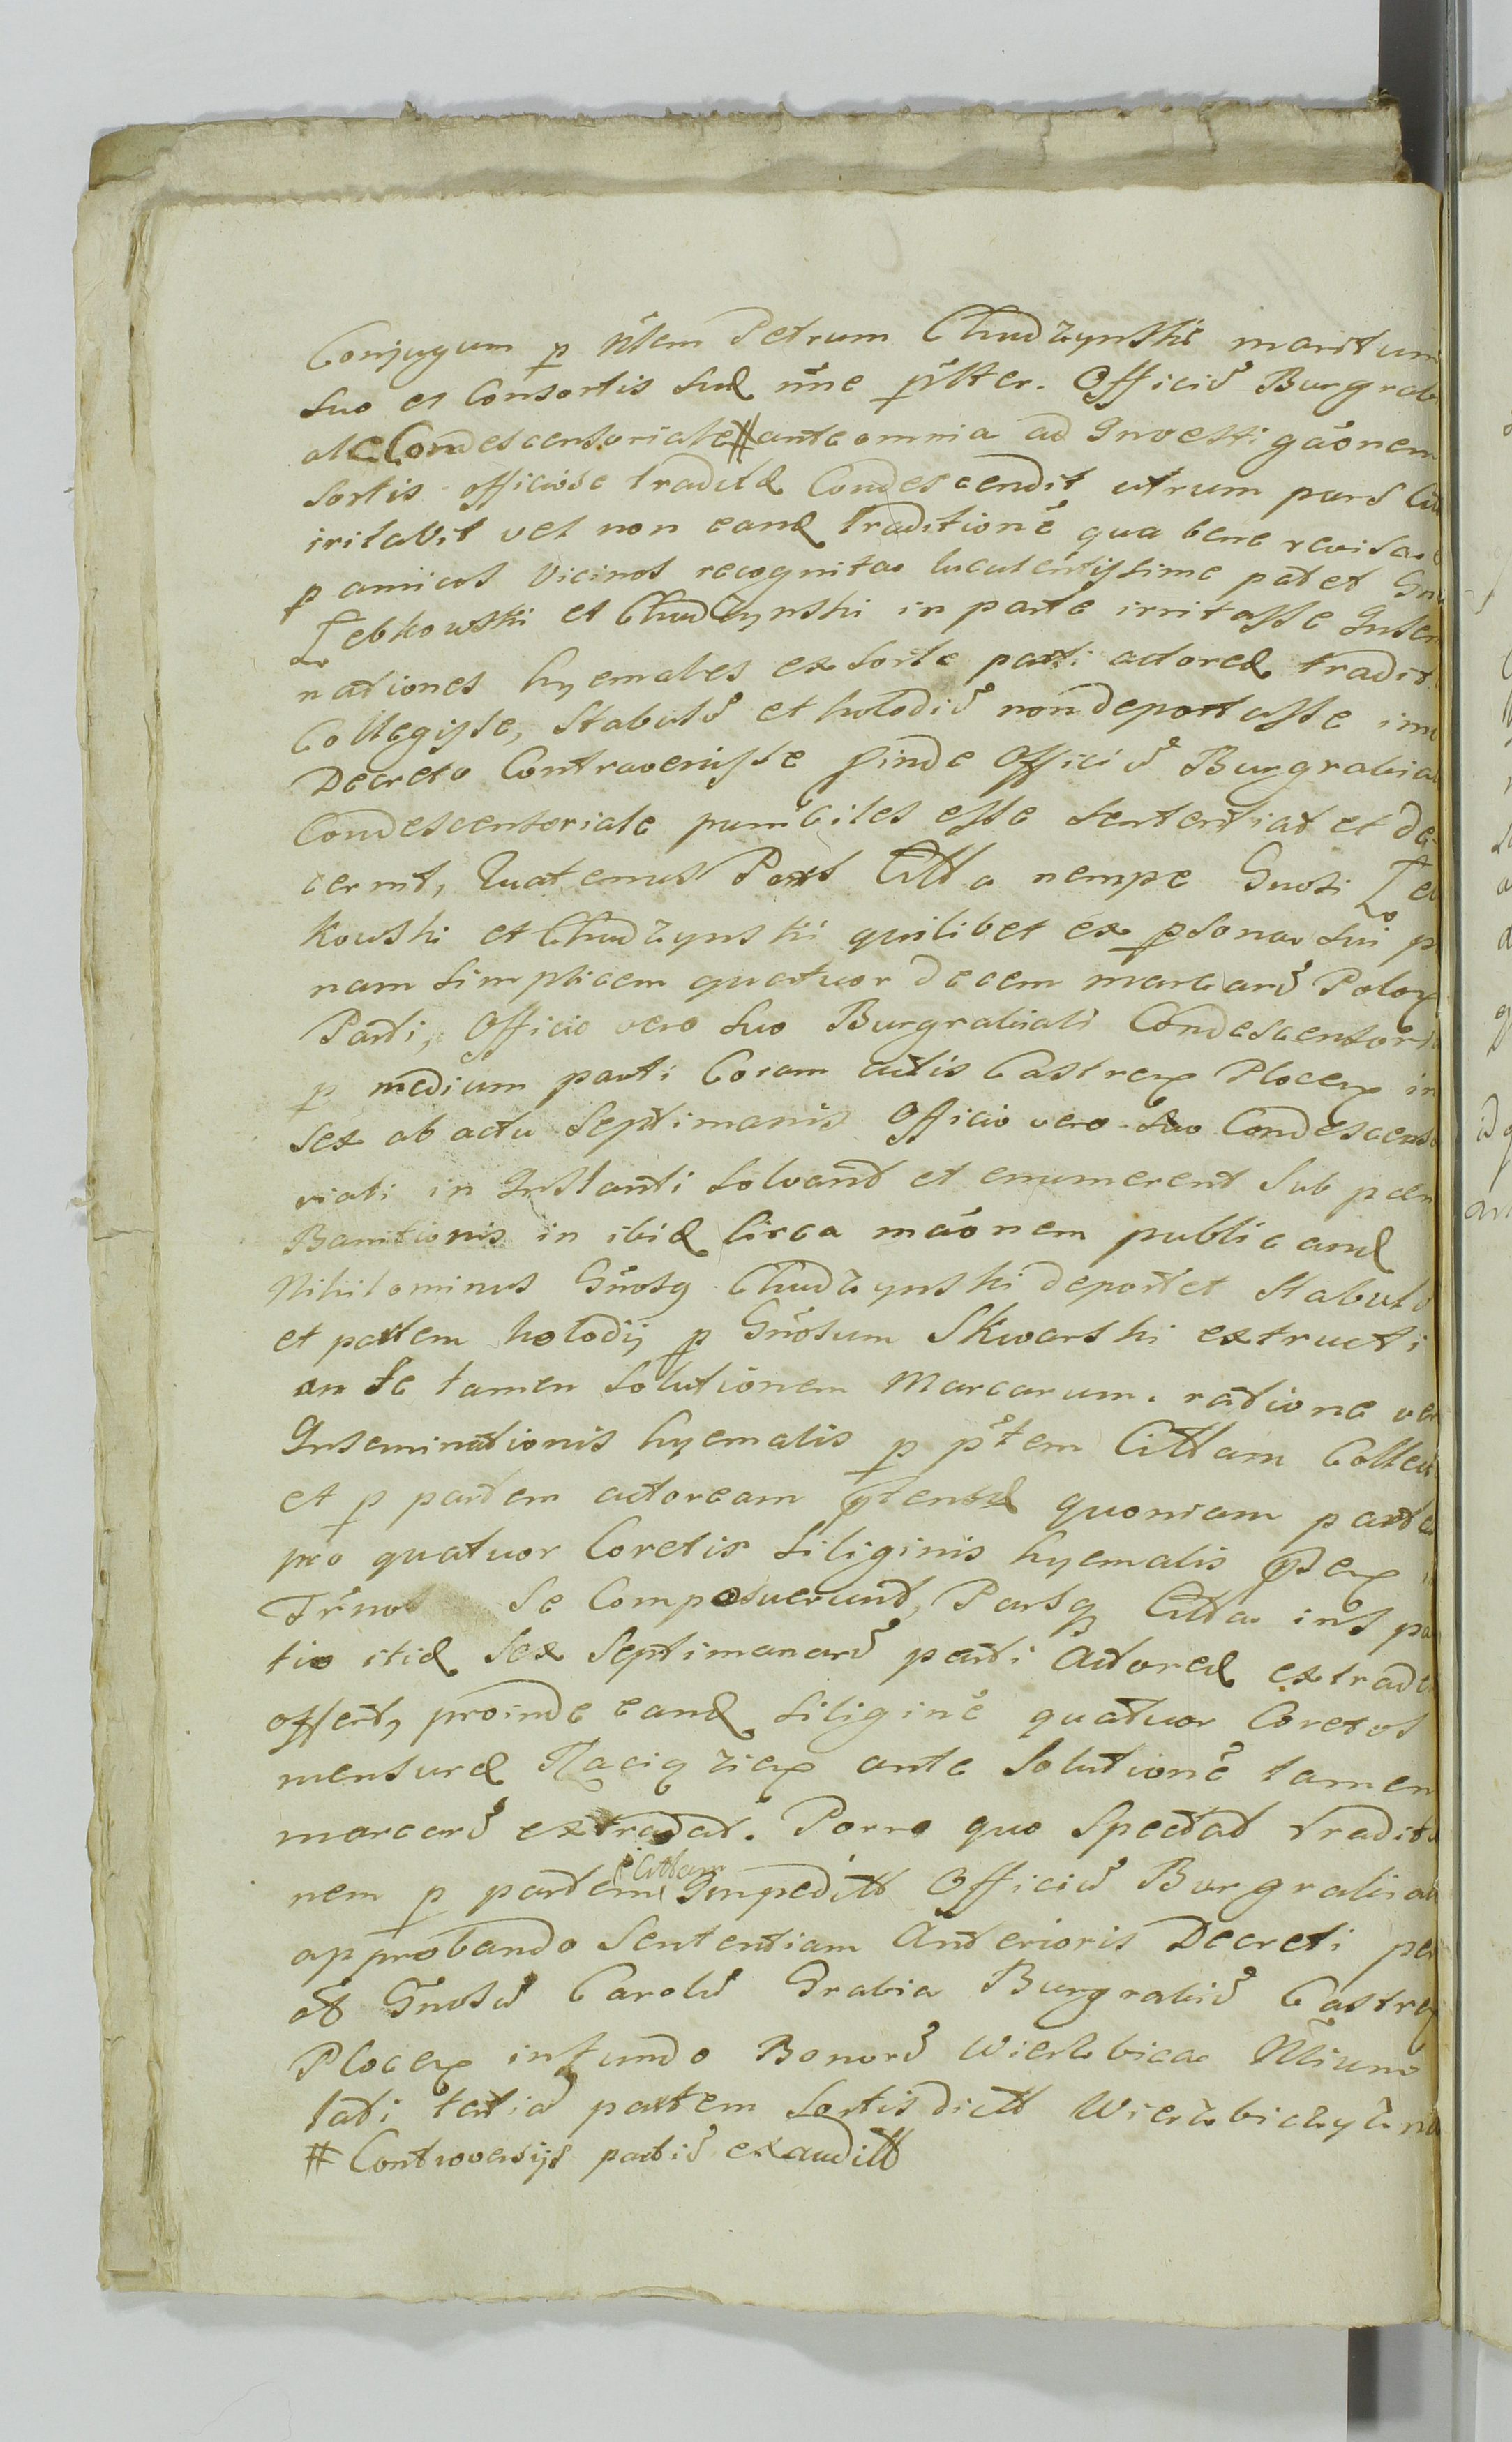 Conjugum p Nlem Petrum Chudzynski maritum
suo et Consortis suæ nne pnlter. Officiu Burgrab
ale Condescensoriale # ante omnia ad Investigaonem
sortis officiose traditæ Condescendit utrum pars Ci
iritavit vel non eand Traditione qua bene revisa
p amicos Vicinos recognita luculentissime patet Gn
Łebkowski et Chudzynski in parte irritasse Inse
nationes hyemales ex sorte parti actoreæ tradit
Collegisse, Stabulu et holodiu non deportasse im
Decreto Contravenisse proinde Officiu Burgrabia
Condescensoriale punibiles esse sententiat et de
cernit, Quatenus Pars Citta nempe Gnosi Łeb
kowski et Chudzynski quilibet ex psona sui p
nam simplicem quatuor decem marcaru Polo
Parti, Officio vero suo Burgrabiali Condescensori
p medium parti Coram actis Castren Plocen in
sex ab actu Septimanis Officio vero suo Condescenso
riali in Instanti solvant et enumerent sub pæn
Bannitionis in ibid Circa maonem publicand
Nihilominus Gnosg Chudzynski deportet Stabulu
et partem holodij p Gnosum Skwarski extructi
ante tamen solutionem Marcarum. ratione ve
Inseminationis hyemalis p ptem Cittam Collec
et p partem actoream ptensæ quoniam part
pro quatuor Coretis siliginis hyemalis
Trnos se Composuerunt, Parsq Citta in spa
tio itid sex Septimanaru parti Actoreæ extrad
offert, proinde eand siligine quatuor Coretos
mensuræ Raciązien ante solutione tamen
marcaru extradat. Porro quo spectat tradit
nem p partem Cittam Impeditt Officiu Burgrabia
approbando Sententiam Anterioris Decreti pe
ol Gnosu Carolu Grabia Burgrabiu Castren
Plocen in fundo Bonoru Wierzbica
lati tertia partem sortis dictt Wierzbiczyzna
# Controversijs partiu exauditt